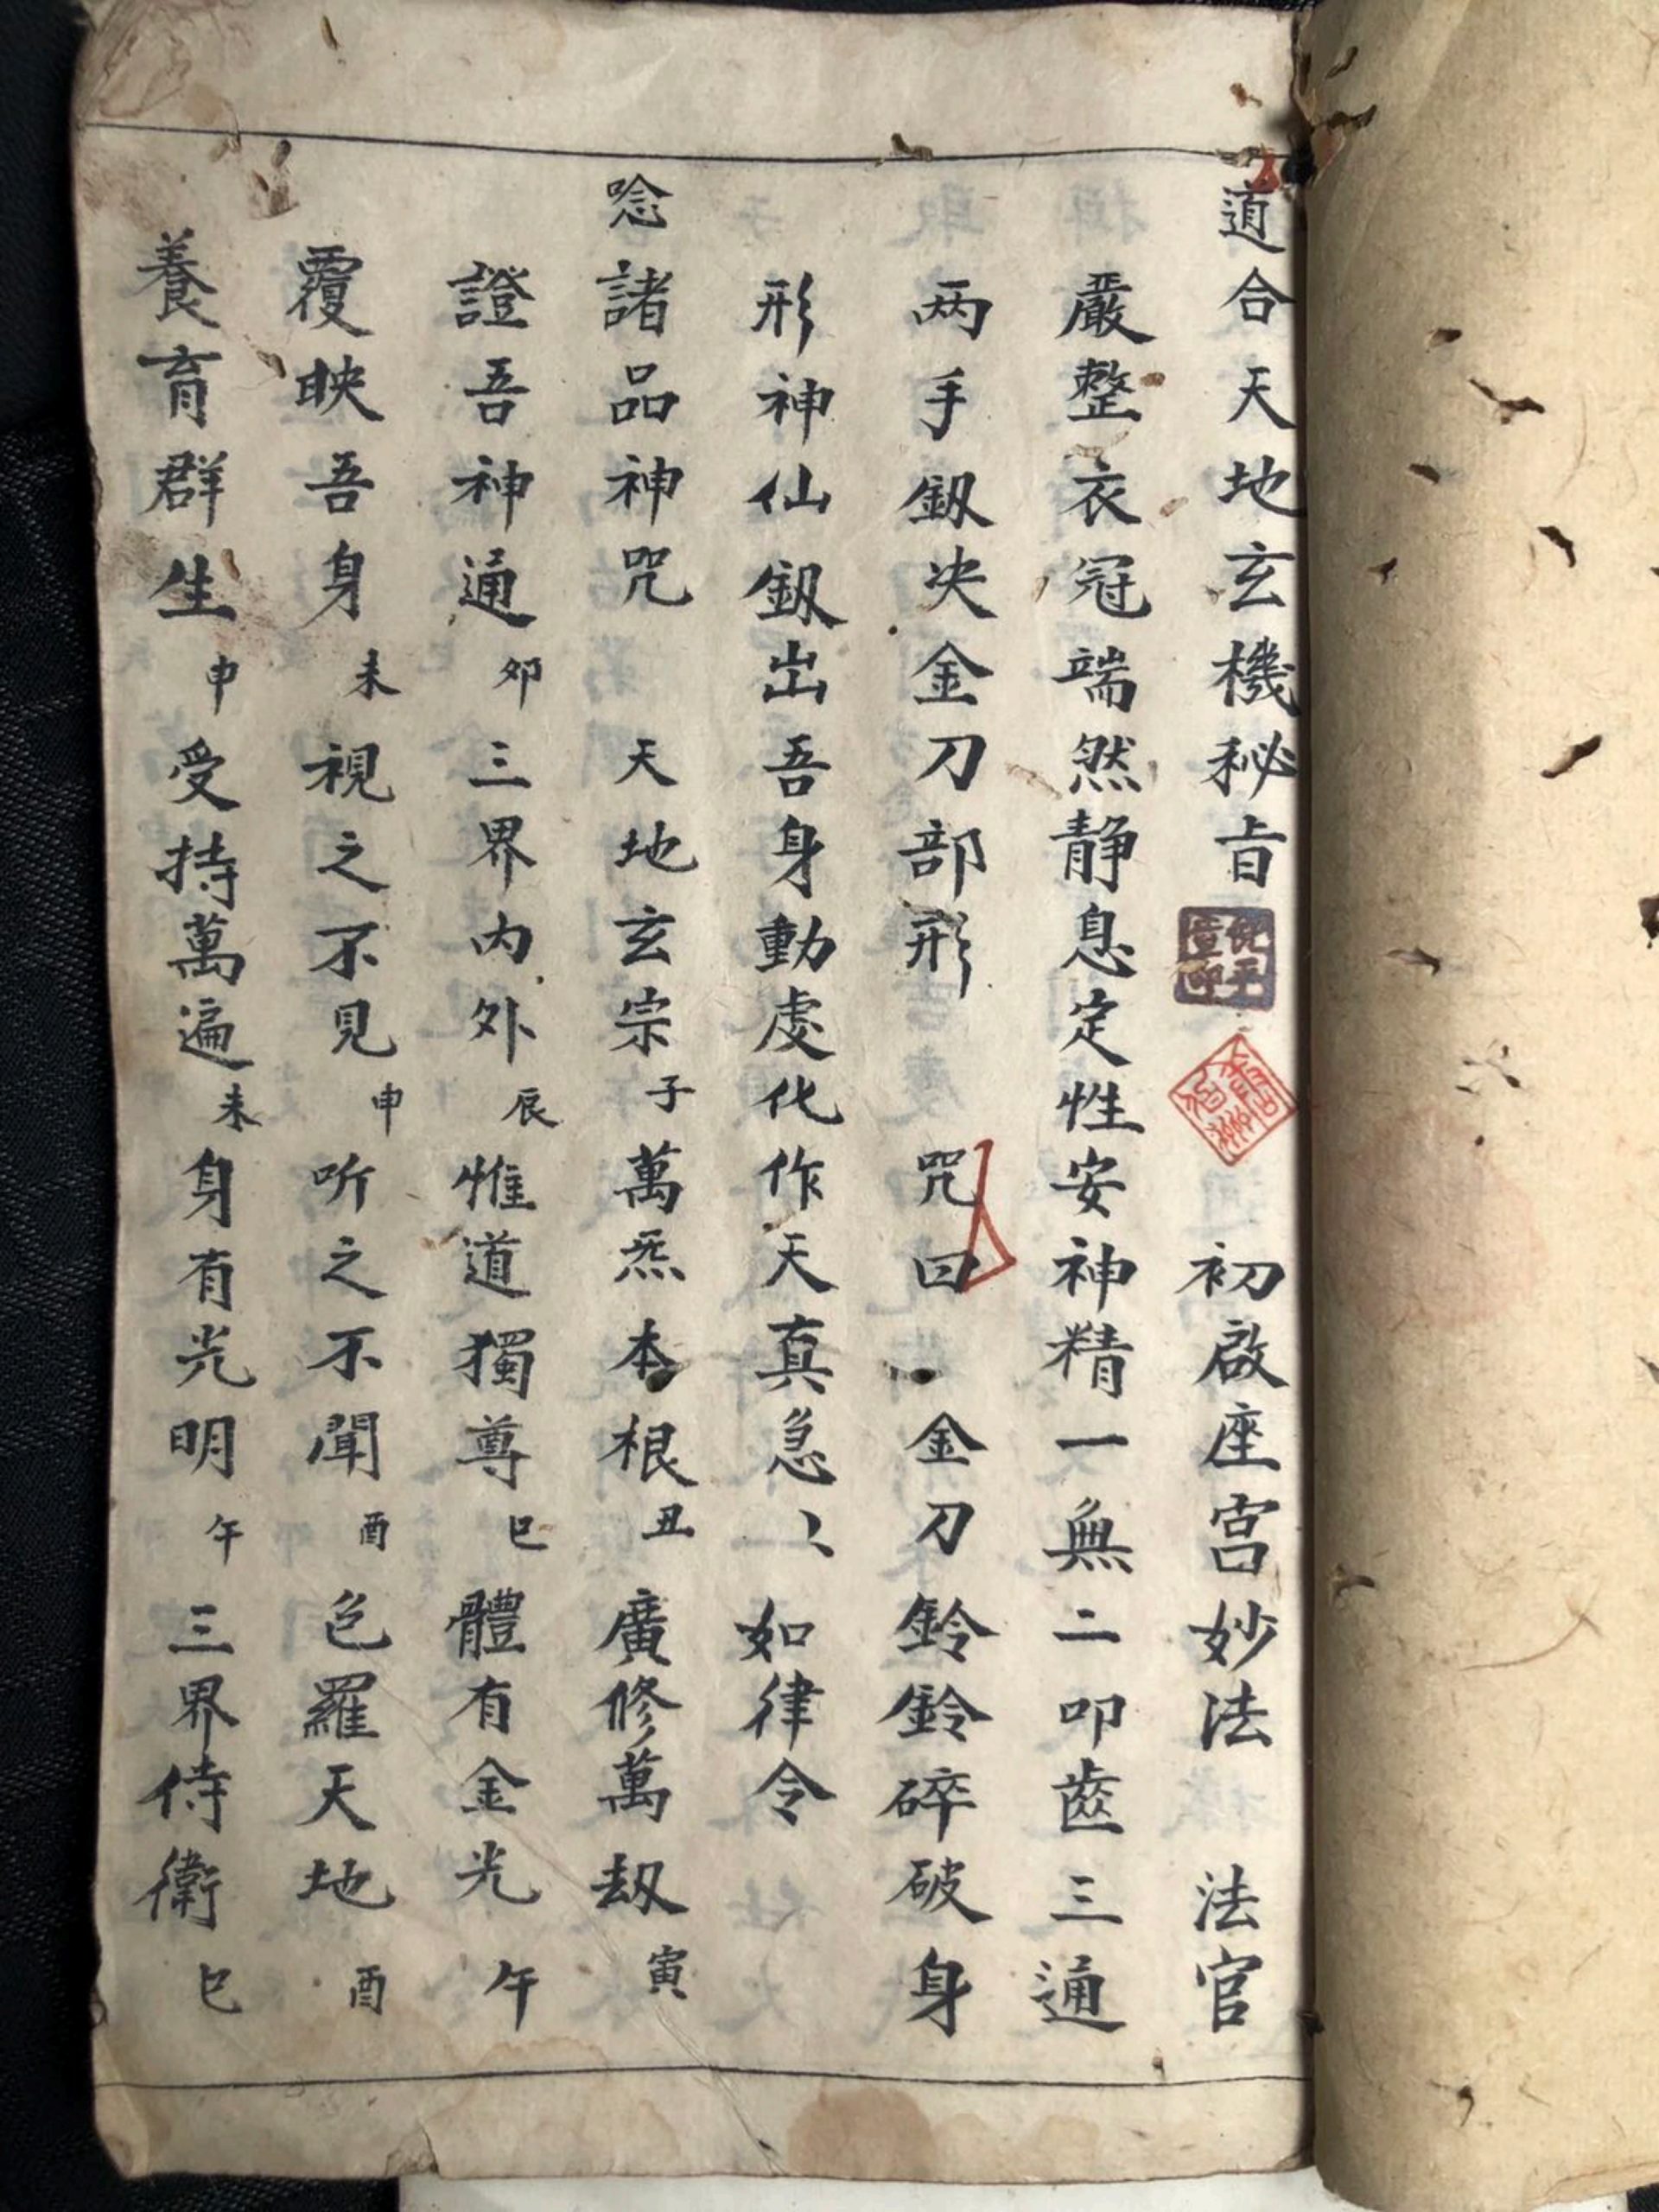 道合天地玄機秘㫖 初啟座宫妙法 法官
嚴整衣冠端然静息定性安神精一無二叩齒三通
两手釼决金刀部形 咒曰 金刀鈴鈴碎破身
形神仙釼出吾身動處化作天真急〻如律令
唸諸品神咒 天地玄宗子萬炁本根丑廣修萬劫寅
證吾神通卯三界内外辰惟道獨尊巳體有金光午
覆映吾身未視之不見申听之不聞酉色羅天地酉
養育群生申受持萬遍未身有光明午三界侍衛巳